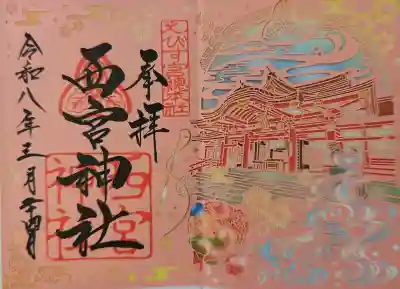 えびす宮総本社
奉拝
西宮神社
西宮
神社
令和八年三月